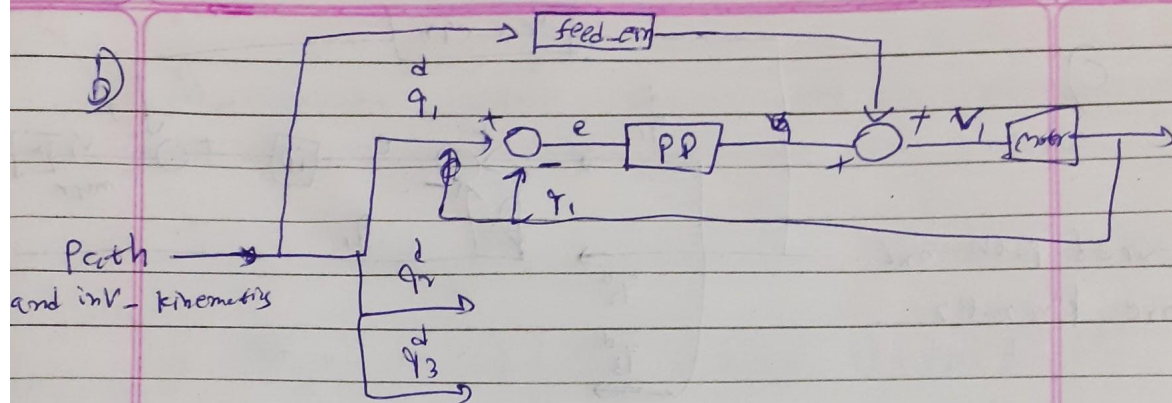 feed_err
b)
q₁ᵈ
+
e
PD
+
V₁
+
-
q₁
Path
and inv_ kinematics
q₂ᵈ
q₃ᵈ